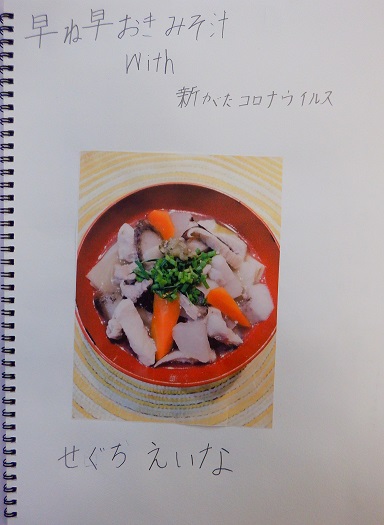 早ね早おきみそ汁
With
新がたコロナウイルス
せぐち えいな